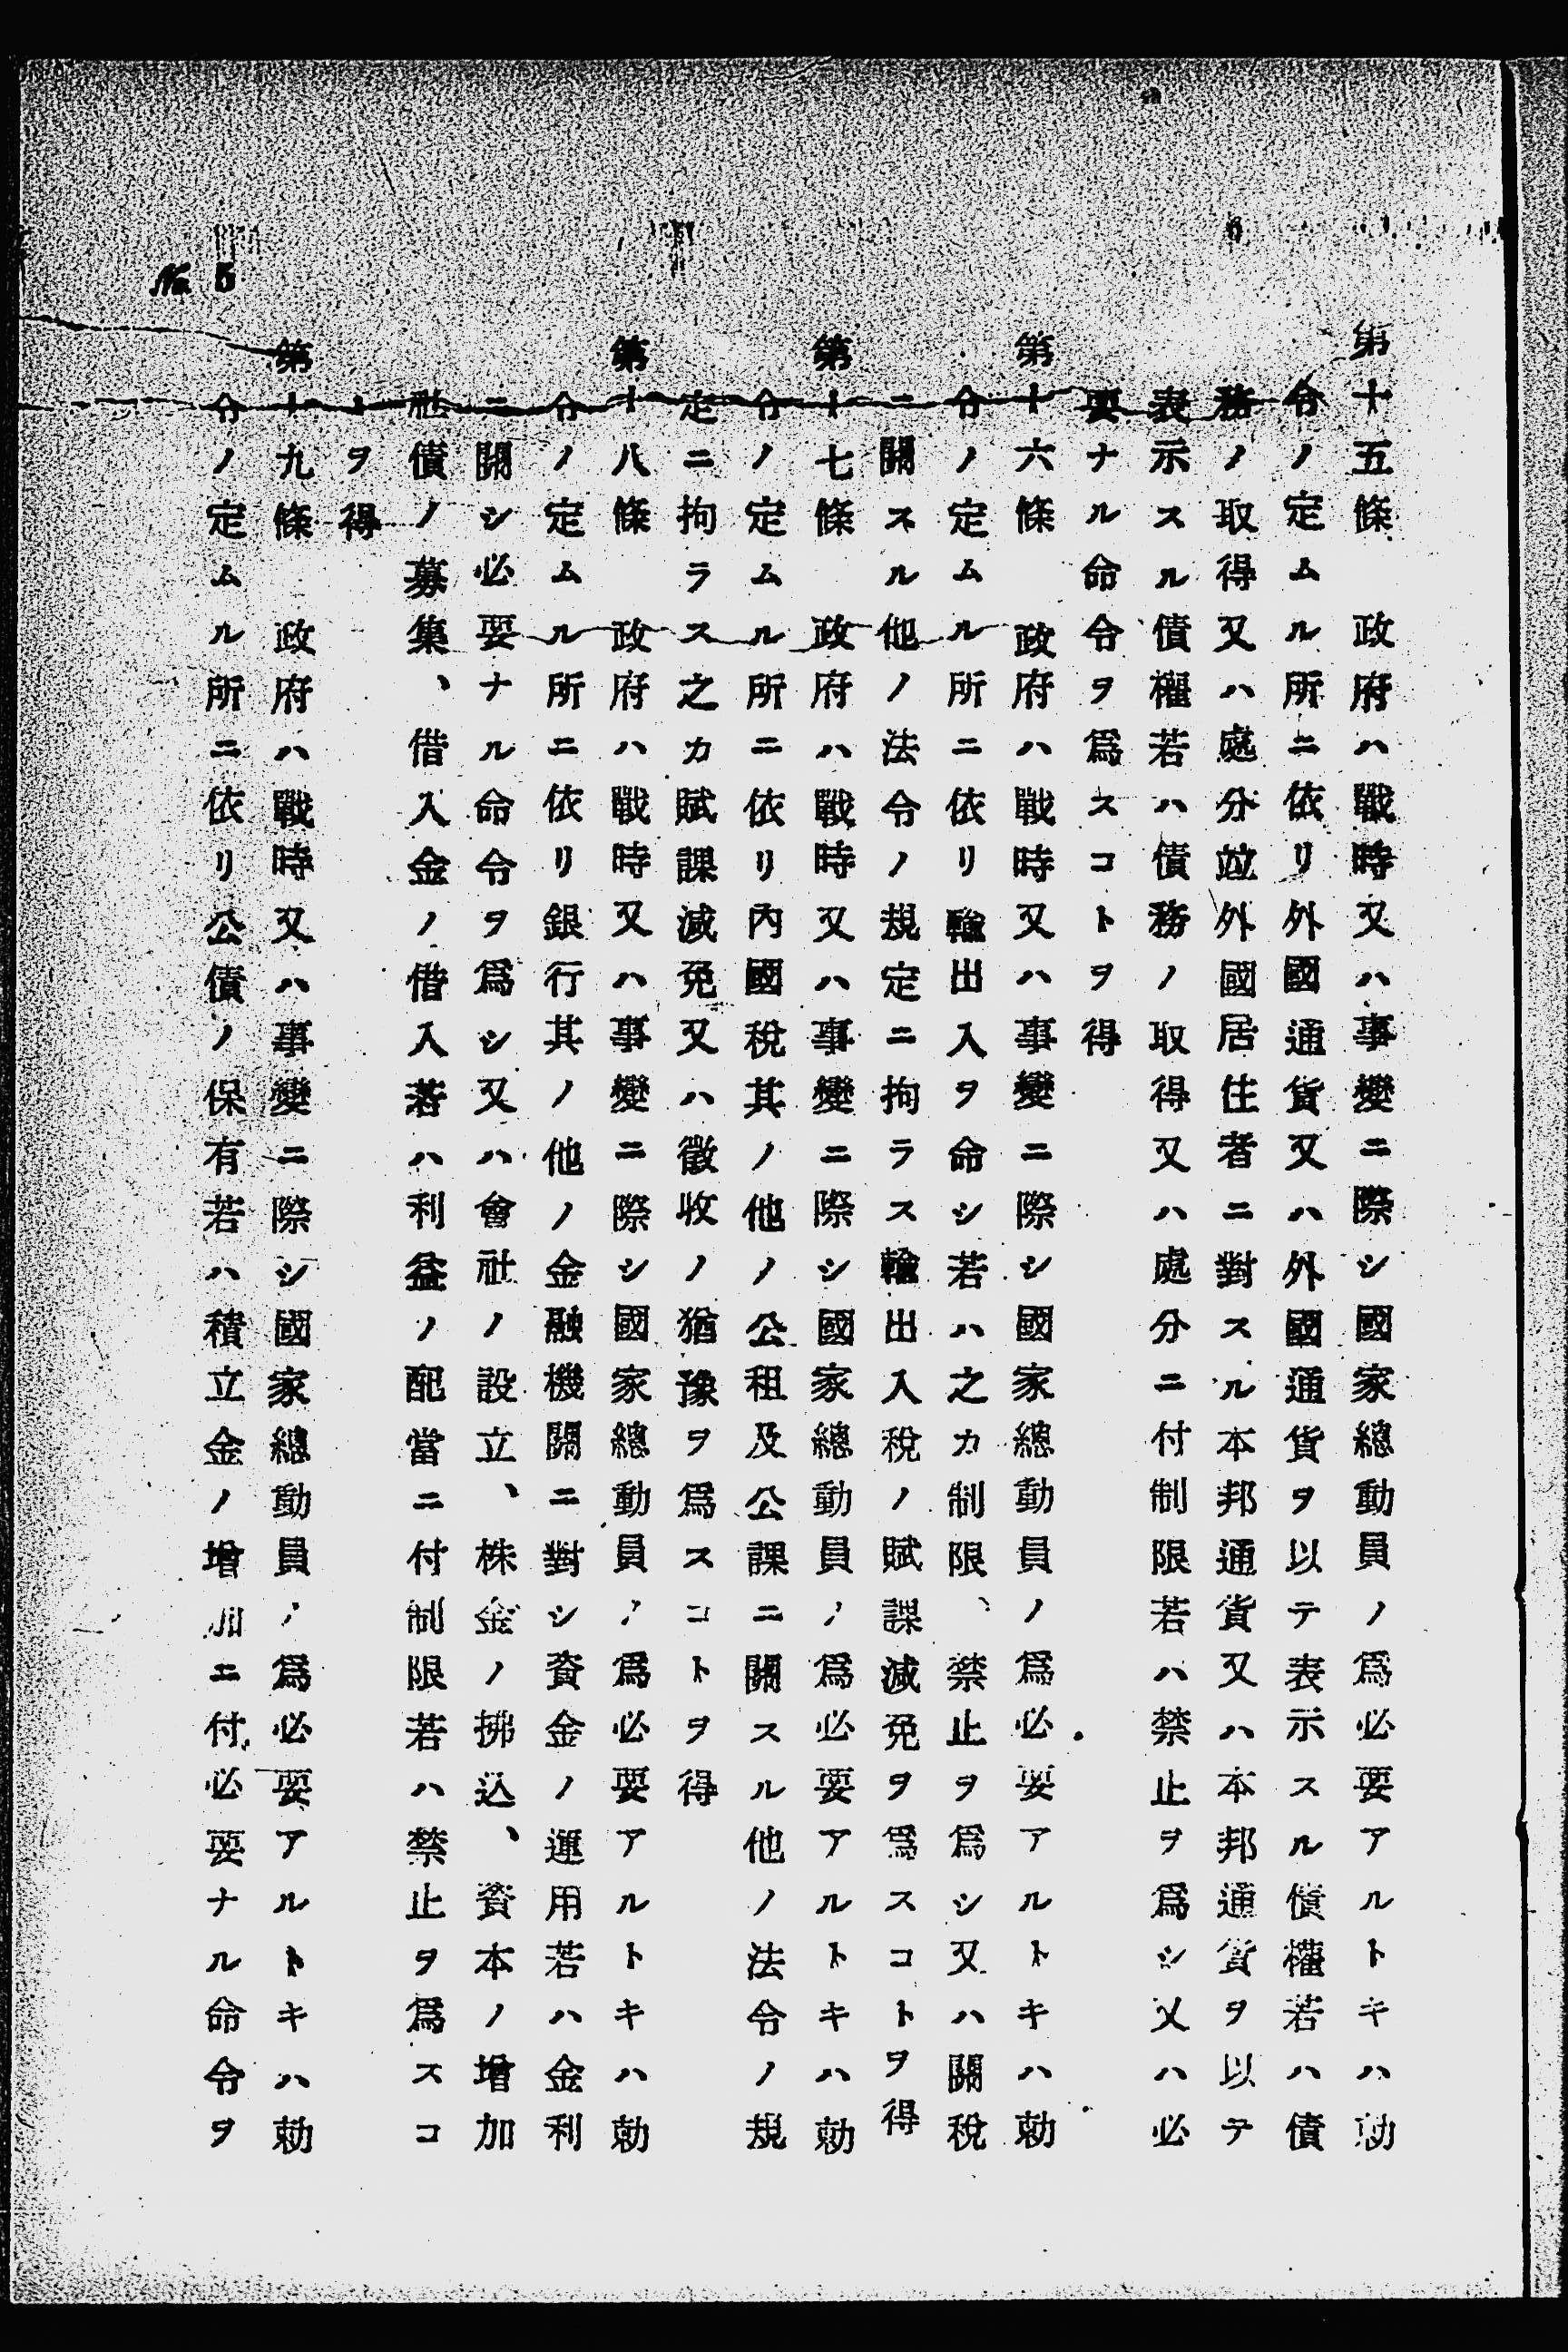 No. 5
第十五條　政府ハ戰時又ハ事變ニ際シ國家總動員ノ爲必要アルトキハ勅
令ノ定ムル所ニ依リ外國通貨又ハ外國通貨ヲ以テ表示スル債權若ハ債
務ノ取得又ハ處分竝外國居住者ニ對スル本邦通貨又ハ本邦通貨ヲ以テ
表示スル債權若ハ債務ノ取得又ハ處分ニ付制限若ハ禁止ヲ爲シ又ハ必
要ナル命令ヲ爲スコトヲ得
第十六條　政府ハ戰時又ハ事變ニ際シ國家總動員ノ爲必要アルトキハ勅
令ノ定ムル所ニ依リ輸出入ヲ命シ若ハ之カ制限、禁止ヲ爲シ又ハ關稅
ニ關スル他ノ法令ノ規定ニ拘ラス輸出入稅ノ賦課減免ヲ爲スコトヲ得
第十七條　政府ハ戰時又ハ事變ニ際シ國家總動員ノ爲必要アルトキハ勅
令ノ定ムル所ニ依リ內國稅其ノ他ノ公租及公課ニ關スル他ノ法令ノ規
定ニ拘ラス之カ賦課減免又ハ徵收ノ猶豫ヲ爲スコトヲ得
第十八條　政府ハ戰時又ハ事變ニ際シ國家總動員ノ爲必要アルトキハ勅
令ノ定ムル所ニ依リ銀行其ノ他ノ金融機關ニ對シ資金ノ運用若ハ金利
ニ關シ必要ナル命令ヲ爲シ又ハ會社ノ設立、株金ノ拂込、資本ノ增加
社債ノ募集、借入金ノ借入若ハ利益ノ配當ニ付制限若ハ禁止ヲ爲スコ
トヲ得
第十九條　政府ハ戰時又ハ事變ニ際シ國家總動員ノ爲必要アルトキハ勅
令ノ定ムル所ニ依リ公債ノ保有若ハ積立金ノ增加ニ付必要ナル命令ヲ